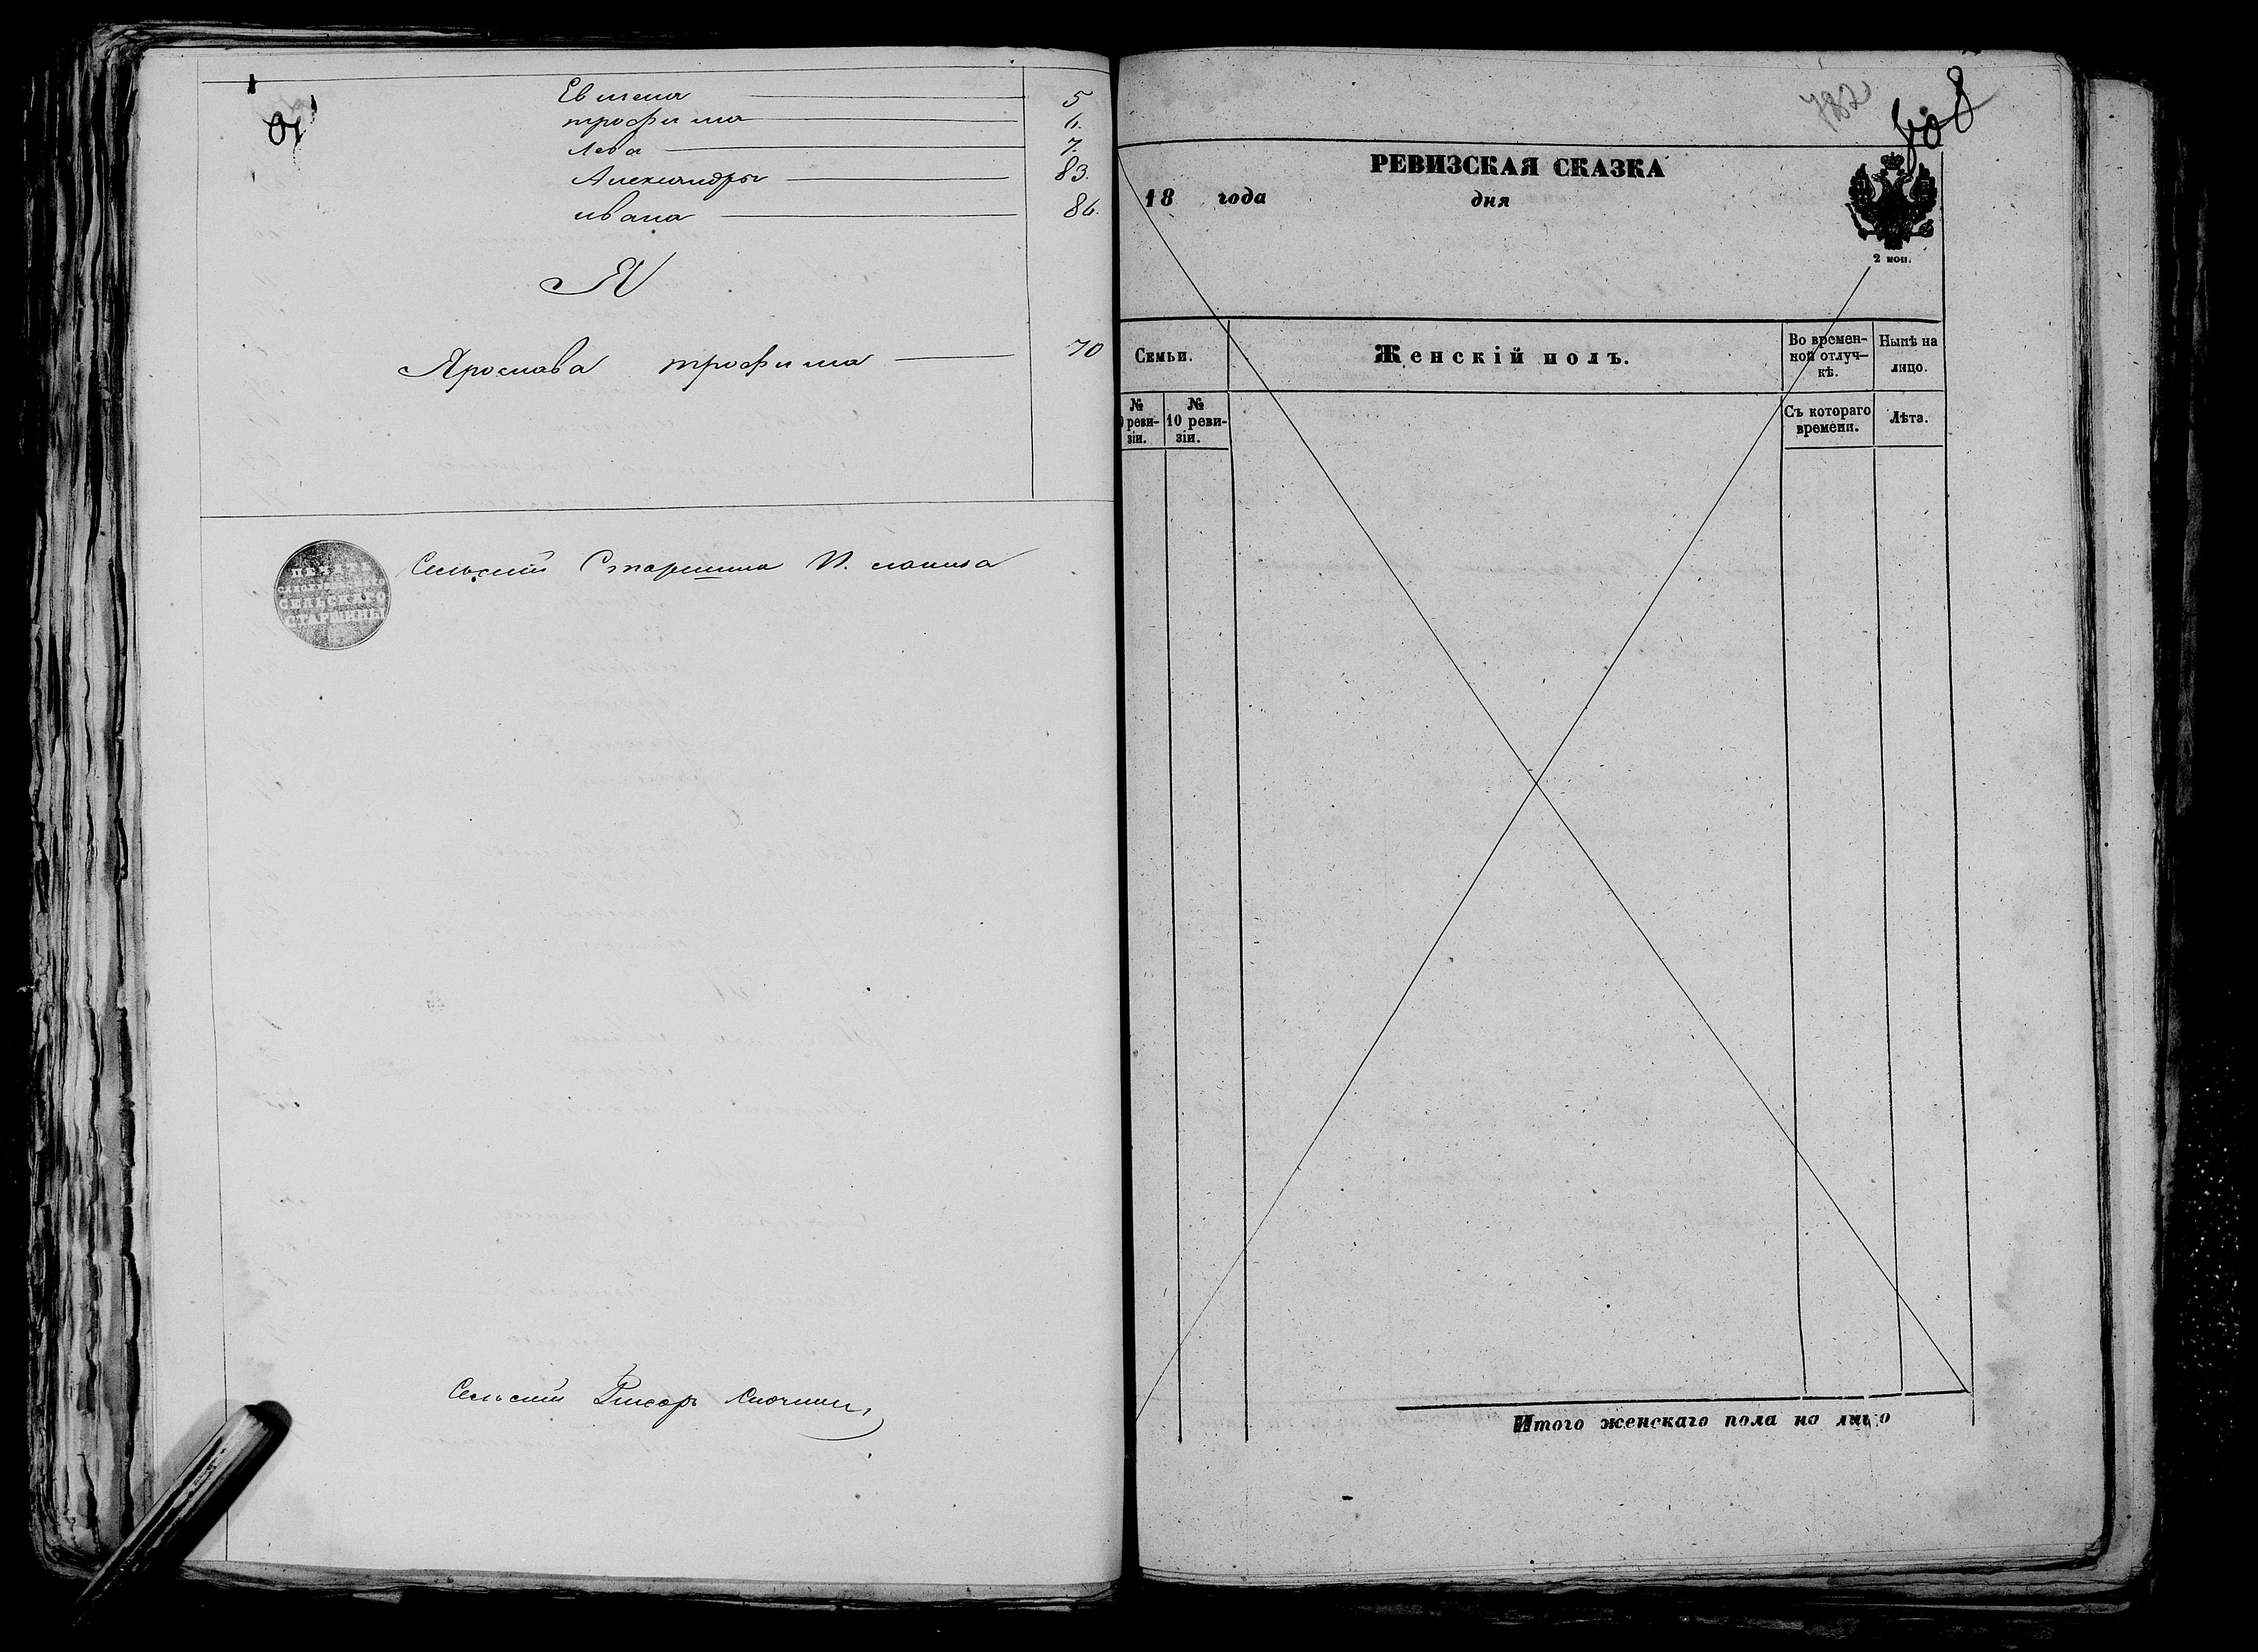 Евмена 5
трофима 6.
Лева 7.
Александры 83.
ивана 86.
Я
Ярослава трофима 70
СЕЛЬСКАГО
СТАРШИНЫ
Сельский Старшина И.
Сельский Писарь
782
РЕВИЗСКАЯ СКАЗКА
18 года дня
2 коп.
Семьи. Женскій полъ. Во времен-ной отлуч-кѣ. Нынѣ на лицо.
№ реви-зіи. № 10 реви-зіи. Съ котораго времени. Лѣта.
Итого женскаго пола на лицо